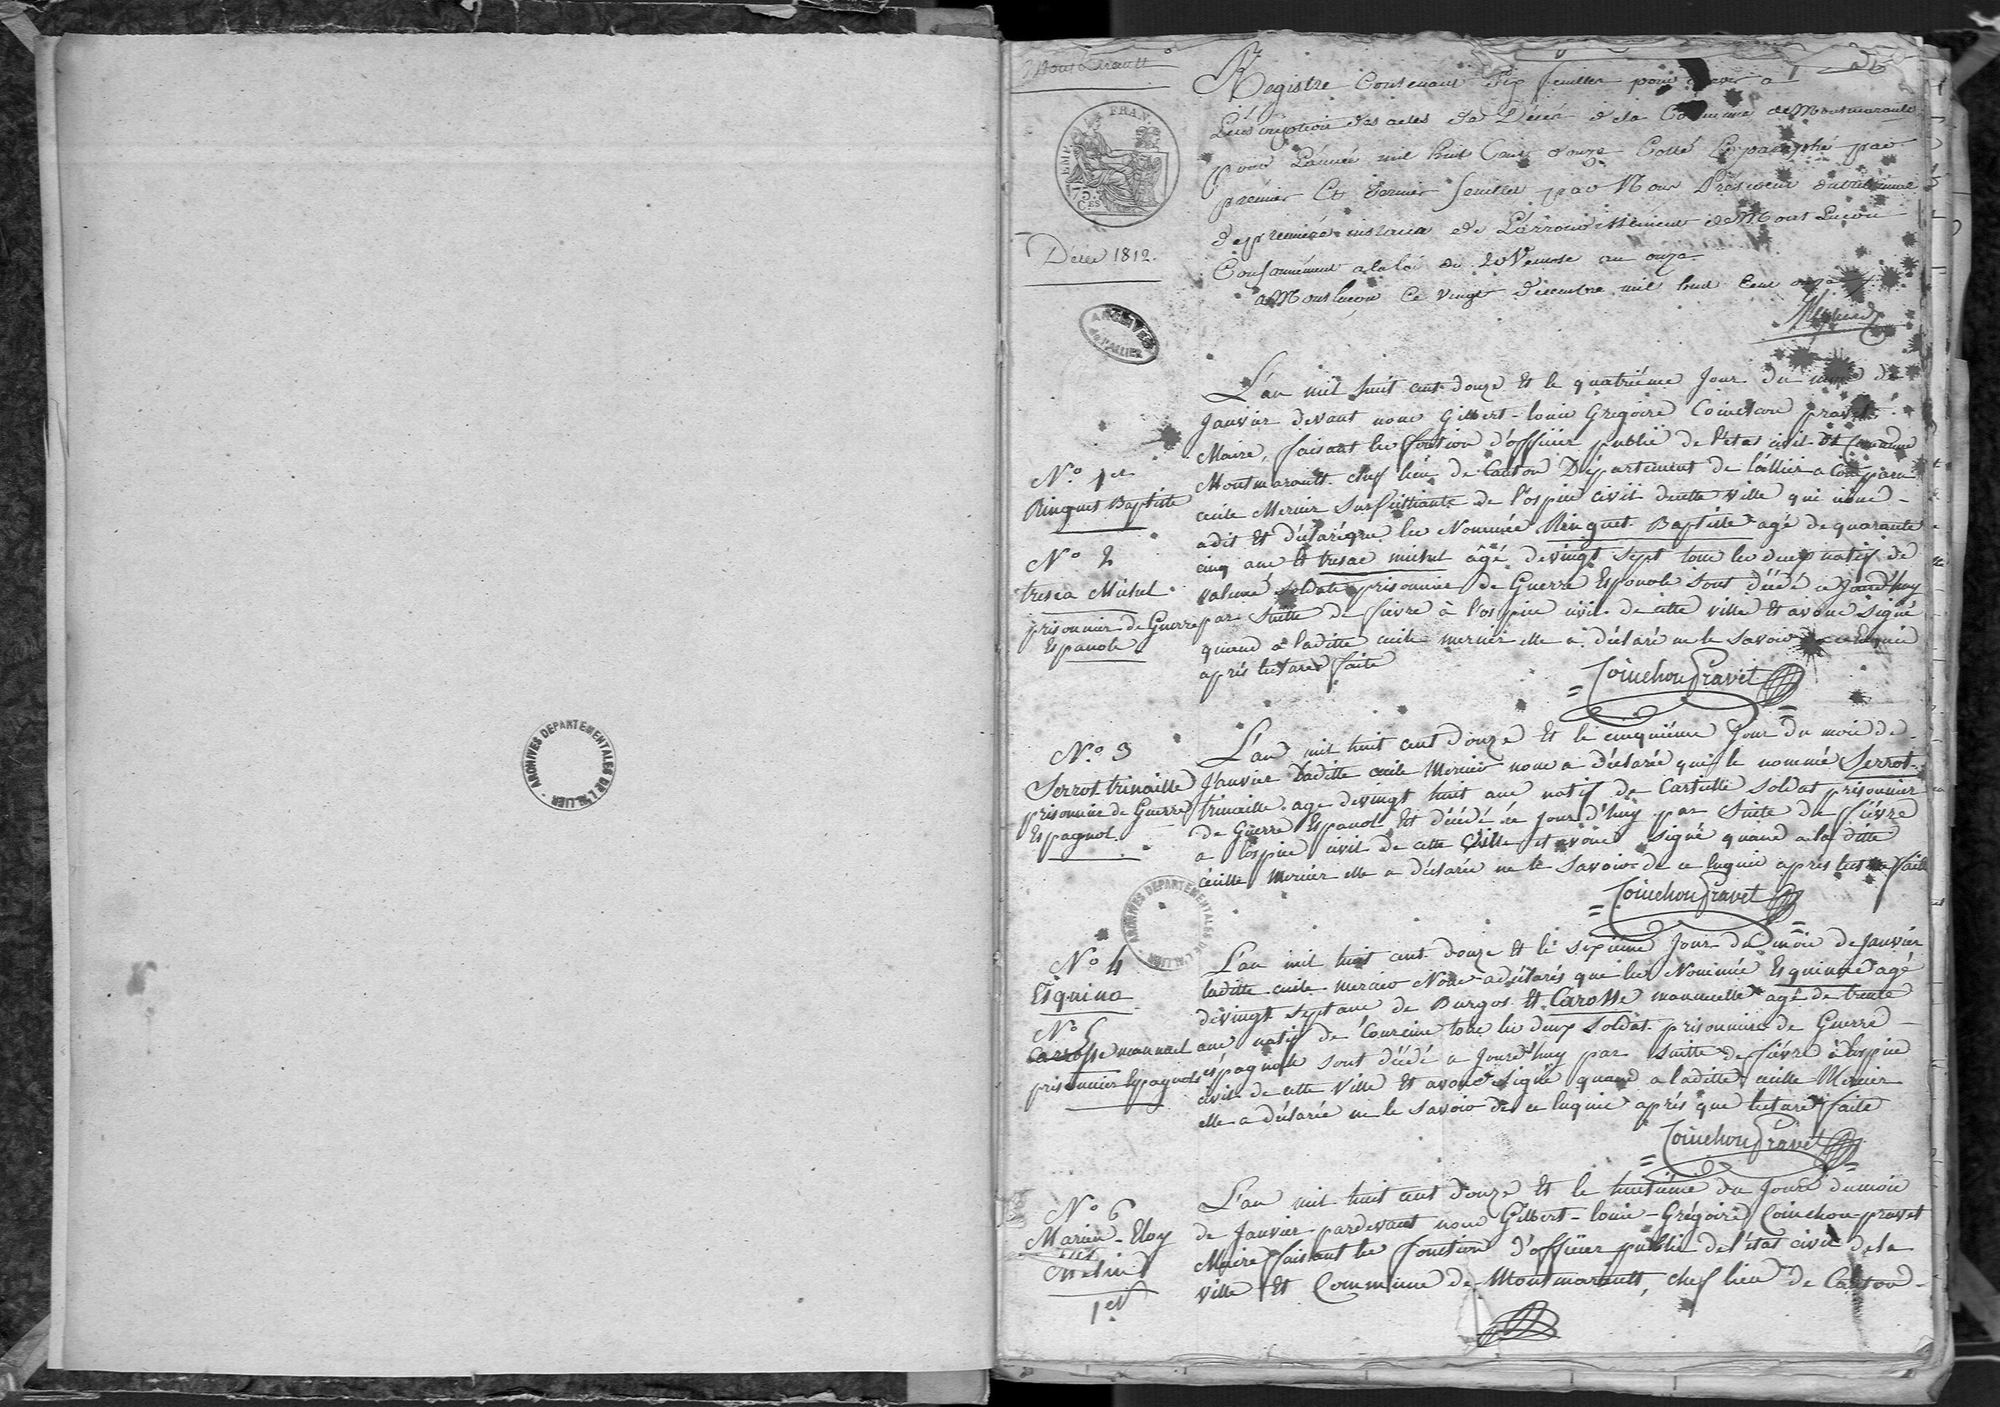 ARCHIVES DEPARTEMENTALES DE L'ALLIER
Montmarault
EMP. LA FRAN.
75 Ces
Décès 1812.
ARCHIVES de l'ALLIER
Registre Contenant Dix feuillets pour servir a
L'inscription des actes de Décès de la Commune de Montmarault
pour L'année mil huit Cent douze Cotté Et paraphé par
premier Et dernier feuillet par Nous Président du tribunal
de premiere instance de L'arrondissement de Mont Luçon
Conformément a la loi du 20 Ventose an onze
a Mont luçon Ce vingt décembre mil huit Cent onze
N.o 1er
Rinquet Baptiste
N.o 2
tresca Michel
prisonnier de Guerre
Espanole
L'an mil huit cent douze Et le quatriéme Jour du mois de
Janvier devant nous Gilbert-louis Grégoire Coinchon pravet
Maire, faisant les fontion d'officier publiè de l'état civil Et Commune
Montmarault chef lieu de Canton Département de l'allier a Comparu
cecile Mercier Surfeillante de l'ospice civil de cette ville qui nous
a dit Et déclaré que les Nommée Rinquet Baptiste agé de quarante
cinq ans Et tresac michel agé de vingt sept tous les deux natifs de
valance soldats prisonnier de Guerre Espanole sont décédé ce Jourd'huy
par suitte de fievre à l'ospice civil de cette ville Et avons signé
quand à laditte cecile mercier elle a déclaré ne le savoir ce Enquis
après lecture faite
Coinchon Pravet
N.o 3
Serrot trinaille
prisonnier de Guerre
Espagnol.
L'an mil huit cent douze Et le cinquiéme Jour du mois de
Janvier laditte cecile Mercier nous a déclarée que le nommé Serrot
trinaille age de vingt huit ans natif de Castille soldat prisonnier
de Guerre Espanol Est décédé ce Jourd'huy par suite de fiévre
a l'ospice civil de cette ville et avons signé quand a la ditte
cecille Mercier elle a déclarée ne le savoir de ce Enquis apres lecture faite
Coinchon Pravet
ARCHIVES DEPARTEMENTALES DE L'ALLIER
N.o 4
Esquina
N.o 5
Carosse manuel
prisonnier Espagnols
L'an mil huit cent douze Et le sixiéme Jour du mois de Janvier
laditte cecile mercier Nous a déclarés que les Nommée Esquina agé
de vingt sept ans de Burgos Et Carosse mannuelle agé de trente
ans natif de Courcine tous les deux soldat prisonnier de Guerre
éspagnole sont décédé a Jourd'huy par suitte de fiévre à lospice
civil de cette ville Et avons signé quand a laditte cecille Mercier
elle a déclarée ne le savoir de ce Enquis aprés que lecture faite
Coinchon Pravet
N.o 6
Marien-Eloy
1er
L'an mil huit cent douze Et le huitiéme du Jour du mois
de Janvier pardevant nous Gilbert-louis-Grégoire Coinchon-pravet
Maire faisant les fonction d'officier public de l'état civil de la
ville Et Commune de Montmarault, chef lieu de Canton